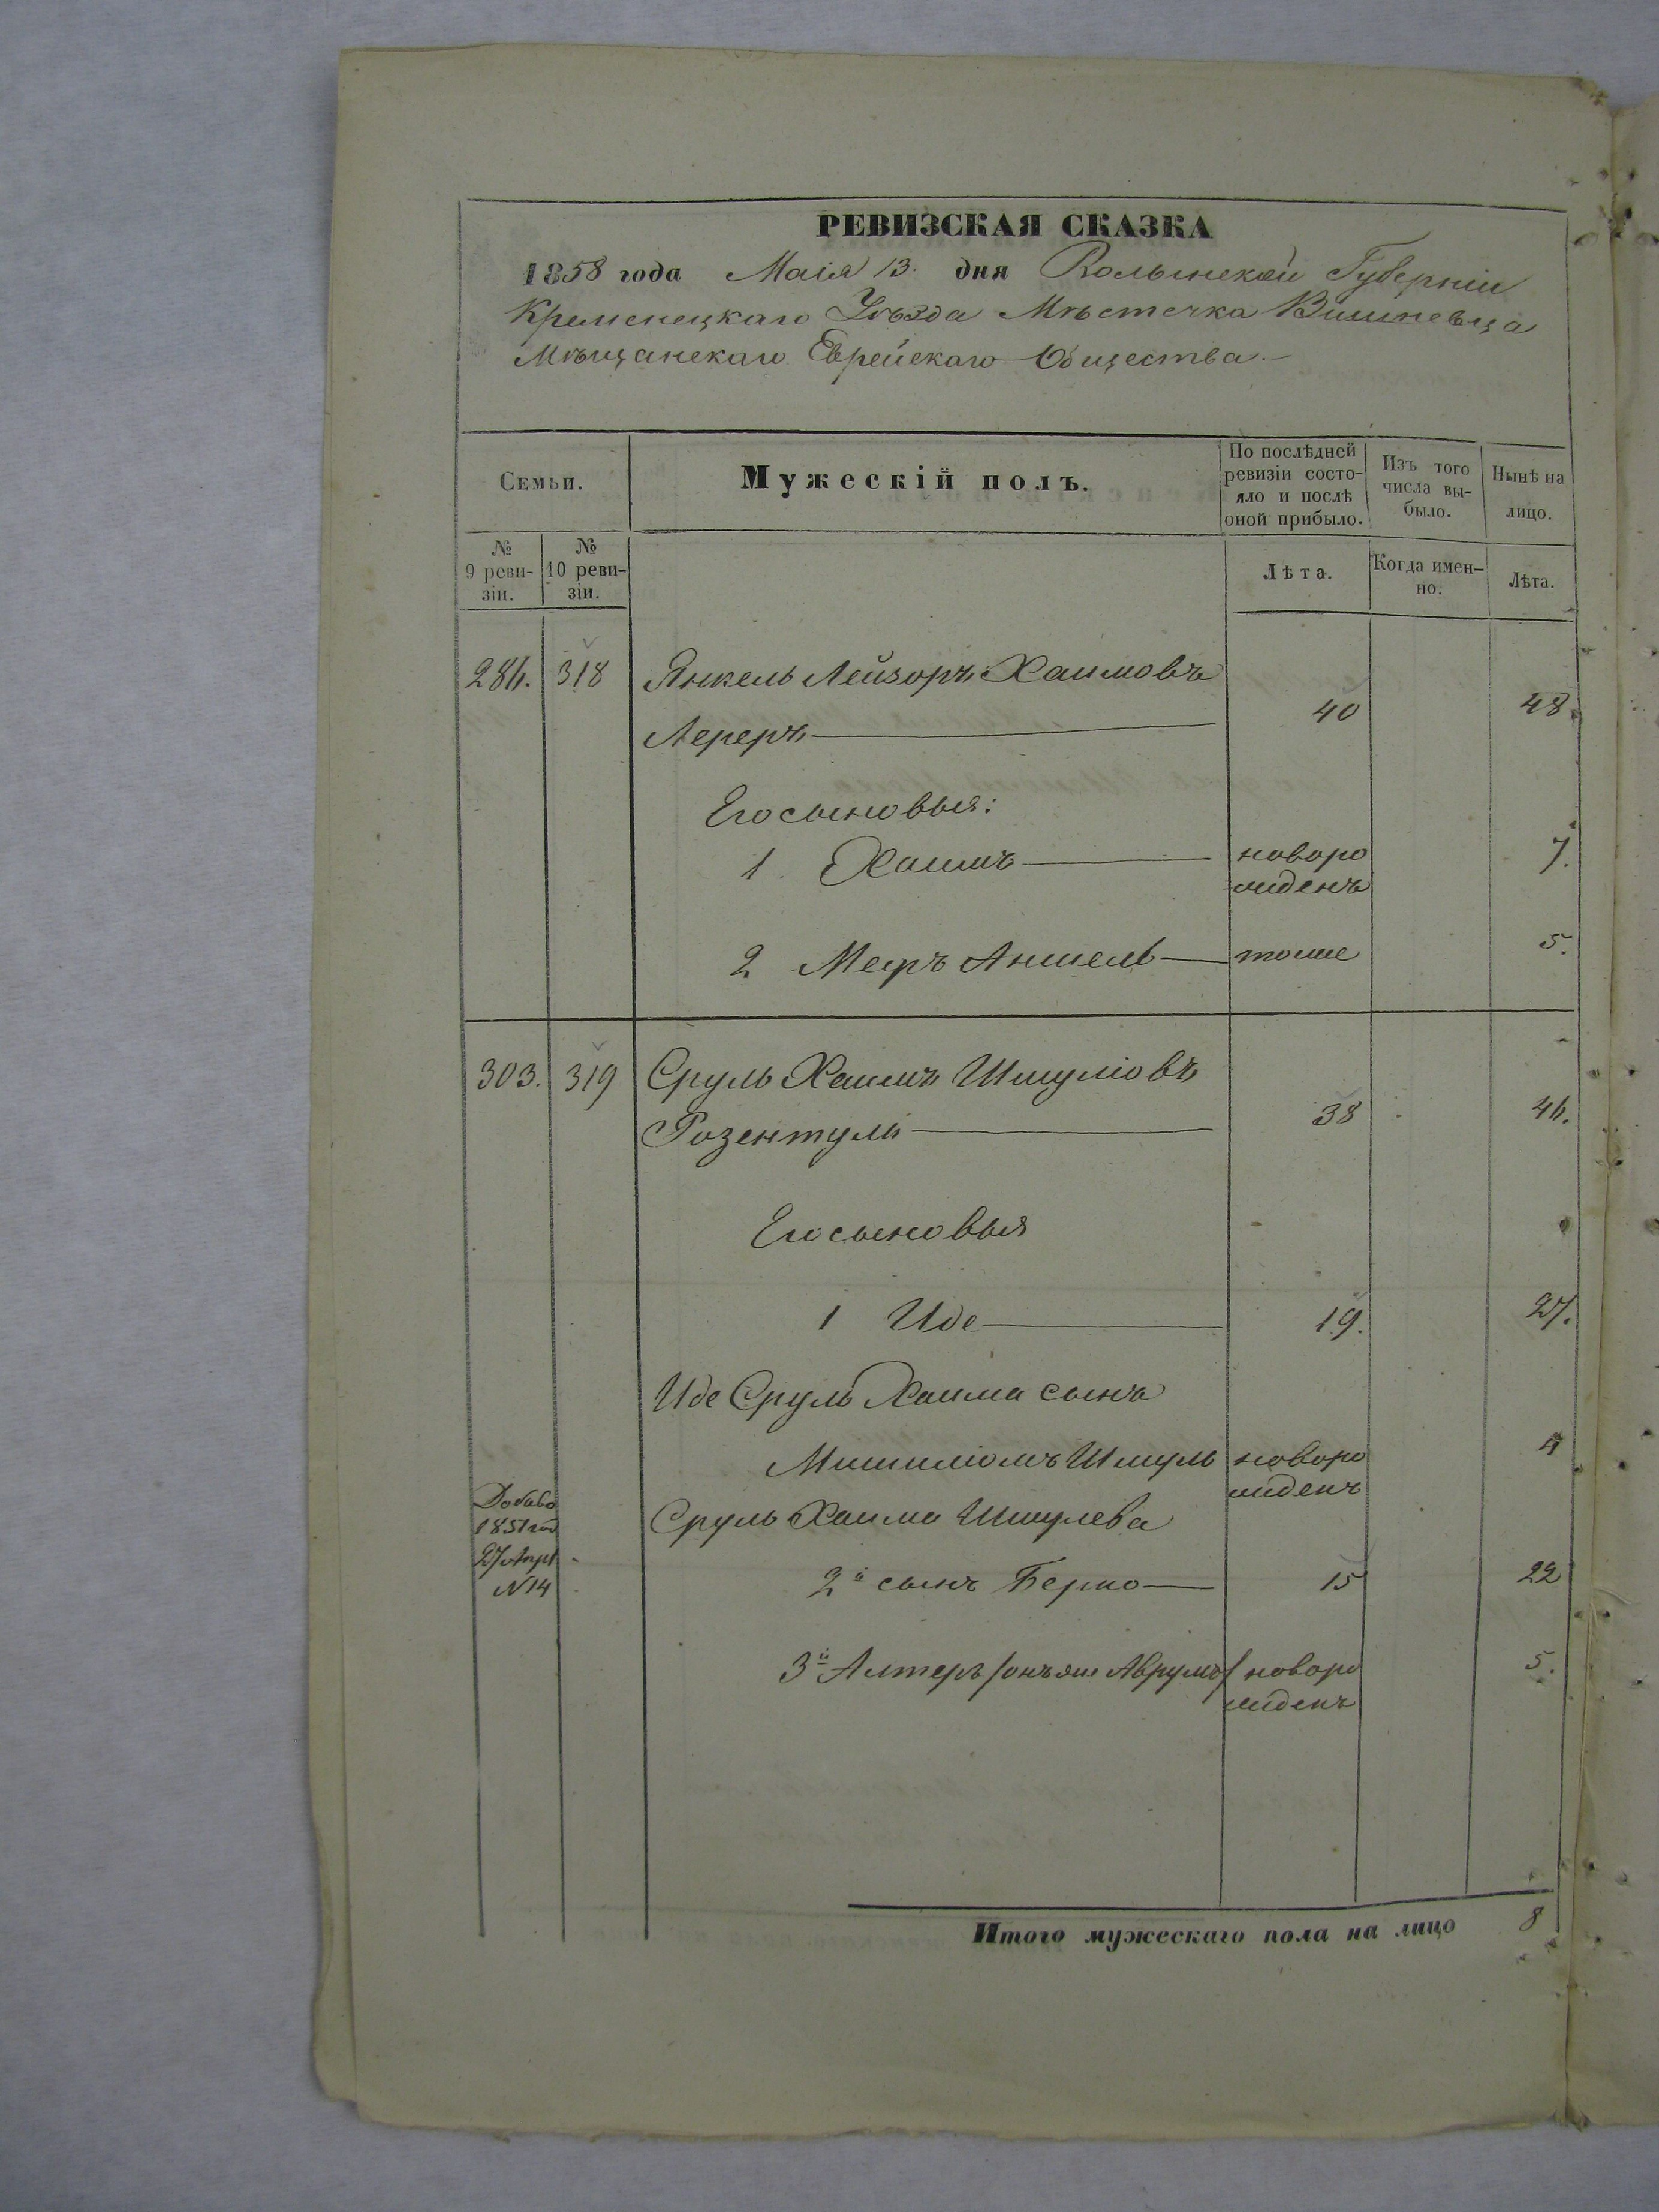 РЕВИЗСКАЯ СКАЗКА
1858 года Маія 13. дня Волынской Губерніи
Кременецкаго Уѣзда Мѣстечка Вишневца
Мѣщанскаго Еврейскаго Общества.
Семьи.
Мужескій полъ.
По послѣдней ревизіи состо-
яло и послѣ оной прибыло.
Изъ того числа вы-
было.
Нынѣ на лицо.
№ 9 реви-
зіи.
№ 10 реви-
зіи.
Лѣта.
Когда имен-
но.
Лѣта.
286. 318 Янкель Лейзоръ Хаимовъ
Лереръ 40 48.
Его сыновья:
1. Хаимъ новоро 7.
жденъ
2 Мееръ Аншель тоже 5.
303. 319 Сруль Хаимъ Шмуліовъ
Розентуль 38 46.
Его сыновья
1 Иде 19. 27.
Иде Сруль Хаима сынъ
Мишиліомъ Шмуль новоро 4
жденъ
Сруль Хаима Шмулева
Добаво
1851 год
27 Апрл
N 14
2й сынъ Берко 15 22
3й Алтеръ /онъ же Аврумъ/ новоро 5.
жденъ
Итого мужескаго пола на лицо 8